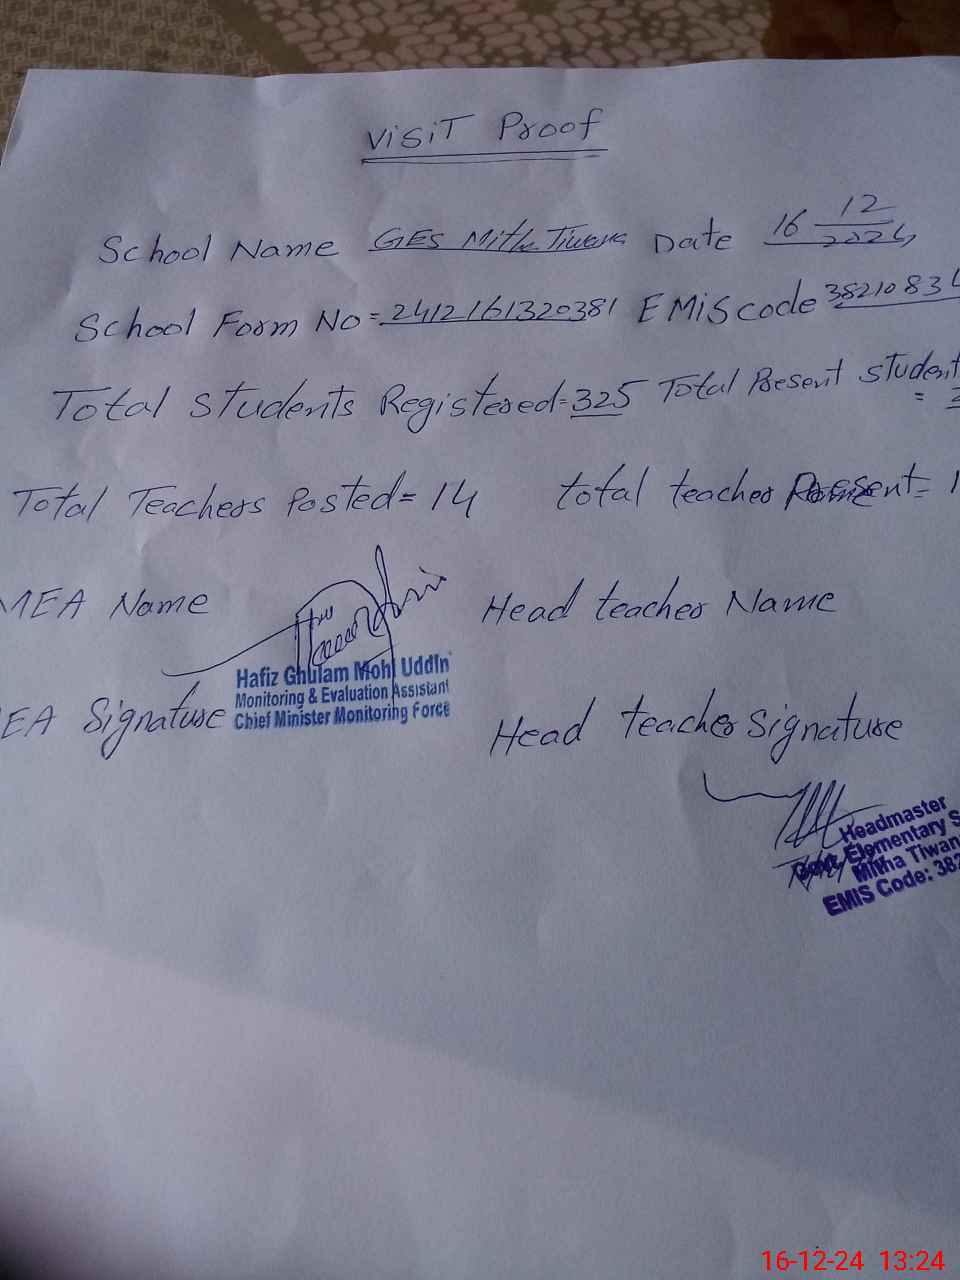 ViSiT Proof
School Name GES Mitha Tiwana Date 16 12 2024
School Form No = 2412161320381 EMiS code 38210834
Total students Registered = 325 Total Present student
=
Total Teachers Posted = 14 total teacher Present = 1
MEA Name Head teacher Name
Hafiz Ghulam Mohi Uddin
Monitoring & Evaluation Assistant
EA Signature Chief Minister Monitoring Force Head teacher signature
Headmaster
Govt. Elementary S
Mitha Tiwan
EMIS Code: 382
16-12-24 13:24